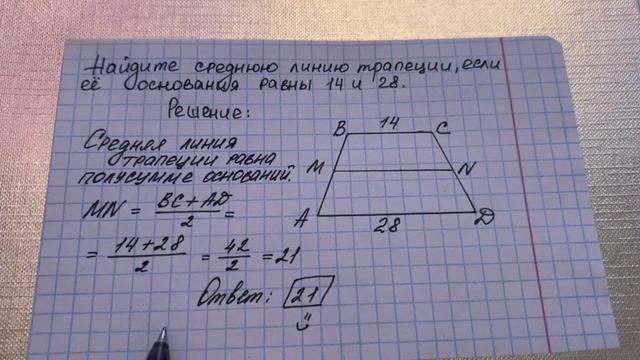 Найдите среднюю линию трапеции, если
её основания равны 14 и 28.
Решение:
Средняя линия
трапеции равна
полусумме оснований.
MN = BC + AD / 2 =
= 14 + 28 / 2 = 42 / 2 = 21
Ответ: 21
B 14 C
M N
A 28 D